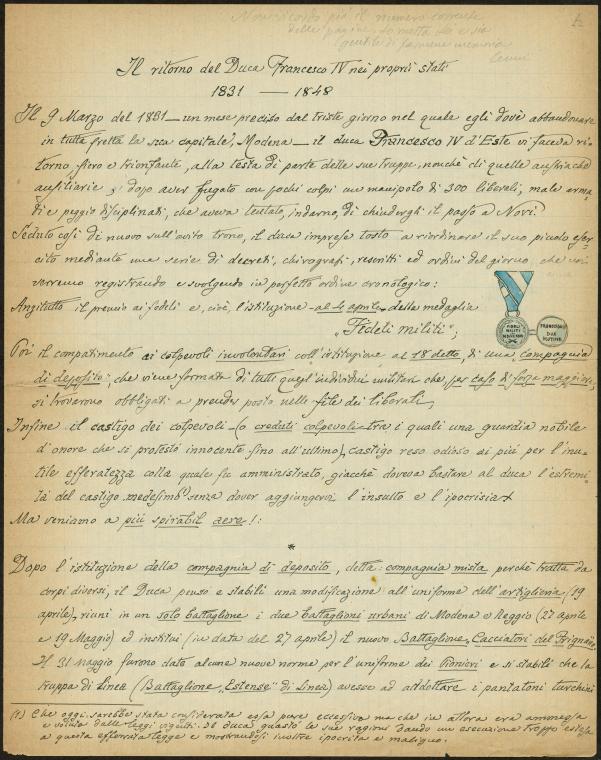 Non ricordo più il numero corrente
delle pagine,
gentile di
Cenni
Il ritorno del Duca Francesco IV nei proprii stati
1831 — 1848
Il 9 Marzo del 1831 — un mese preciso dal triste giorno nel quale egli dovè abbandonare
in tutta fretta la sua capitale, Modena — il duca Francesco IV d'Este vi faceva ri-
torno, fiero e trionfante, alla testa di parte delle sue truppe, nonchè di quelle austriache
ausiliarie e dopo aver fugato con pochi colpi un manipolo di 300 liberali, male arma-
ti e peggio disciplinati, che aveva tentato, indarno, di chiudergli il passo a Novi.
Seduto così di nuovo sull'avito trono, il duca imprese tosto a riordinare il suo piccolo eser-
cito mediante una serie di decreti, chirografi, rescritti ed ordini del giorno che noi
verremo registrando e svolgendo in perfetto ordine cronologico:
Anzitutto il premio ai fedeli e, cioè, l'istituzione — al 4 aprile — della medaglia
"Fideli militi";
FIDELI
MILITI
FRANCISCUS
DUX
MUTINAE
Poi il compatimento ai colpevoli involontari coll'istituzione al 18 detto, di una compagnia
di deposito, che viene formata di tutti quegl'individui militari che, per caso di forza maggiore,
si trovarono obbligati a prender posto nelle file dei liberali,
Infine il castigo dei colpevoli — (o creduti colpevoli — tra i quali una guardia nobile
d'onore che si protestò innocente fino all'ultimo), castigo reso odioso ai più per l'inu-
tile efferatezza colla quale fu amministrato, giacchè doveva bastare al duca l'estremi-
tà del castigo medesimo senza dover aggiungervi l'insulto e l'ipocrisia
Ma veniamo a più spirabil aere!:
*
Dopo l'istituzione della compagnia di deposito, detta: compagnia mista, perchè tratta da
corpi diversi, il Duca pensò e stabilì una modificazione all'uniforme dell'artiglieria (19
aprile), riunì in un solo battaglione i due battaglioni urbani di Modena e Reggio (27 aprile
e 19 Maggio) ed instituì (in data del 27 aprile) il nuovo Battaglione Cacciatori del Frignano.
Il 31 maggio furono date alcune nuove norme per l'uniforme dei Pionieri e si stabilì che la
truppa di Linea (Battaglione "Estense" di Linea) avesse ad addottare i pantaloni turchini
(1) Che oggi sarebbe stata considerata essa pure eccessiva ma che in allora era ammessa
e voluta dalle leggi vigenti. Il duca guastò le sue ragioni dando un esecuzione troppo estesa
a questa efferrata legge e mostrandosi inoltre ipocrita e maligno.